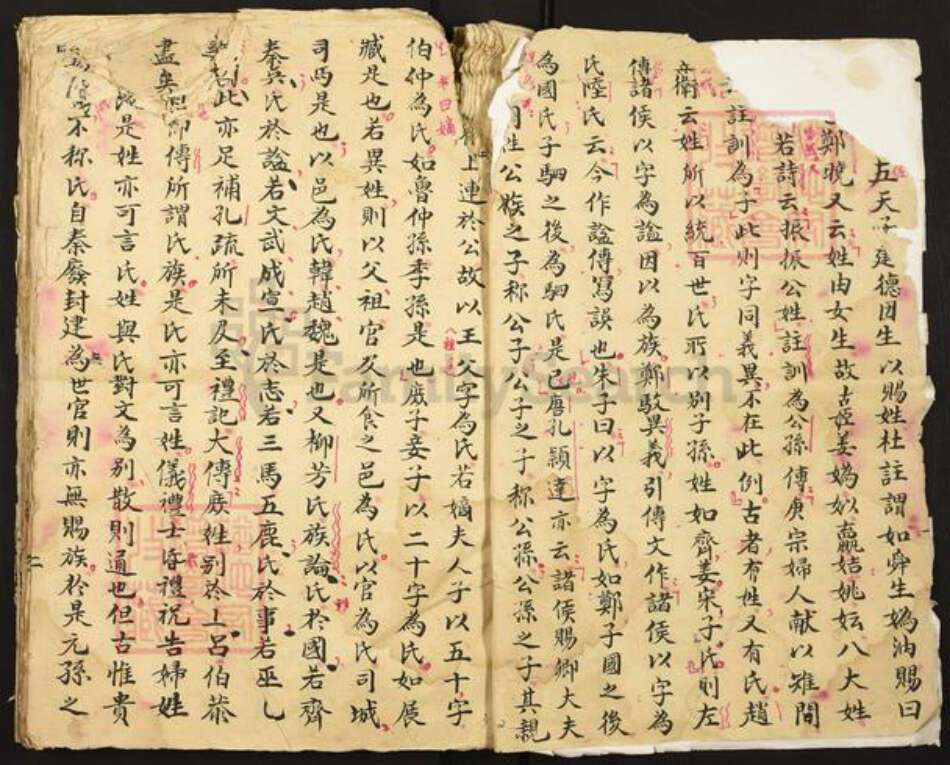 五天子建德因生以賜姓杜註謂如舜生媯汭賜曰
鄭曉又云姓由女生故古姪姜媯姒嬴姞姚妘八大姓
若詩云振振公姓註訓為公孫傳庚宗婦人献以雉問
註訓為子此則字同義異不在此例古者有姓又有氏趙
衛云姓所以統百世氏所以別子孫姓如齊姜宋子氏則左
傳諸侯以字為謚因以為族鄭駁異義引傳文作諸侯以字為
氏陸氏云今作謚傳寫誤也朱子曰以字為氏如鄭子國之後
為國氏子駟之後為駟氏是已唐孔穎達亦云諸侯賜卿大夫
同姓公族之子称公子公子之子称公孫公孫之子其親
上連於公故以王父字為氏若嫡夫人子以五十字
伯仲為氏如魯仲孫季孫是也庶子妾子以二十字為氏如展
臧是也若異姓則以父祖官及所食之邑為氏以官為氏司城
司馬是也以邑為氏韓趙魏是也又柳芳氏族論氏於國若齊
秦吳氏於謚若文武成宣氏於志若三馬五鹿氏於事若巫乙
此亦足補孔疏所未及至禮記大傳庶姓別於上呂伯恭
盡矣即傳所謂氏族是氏亦可言姓儀禮士昏禮祝告婦姓
是姓亦可言氏姓與氏對文為別散則通也但古惟貴
不称氏自秦廢封建為世官則亦無賜族於是元孫之
FamilySearch